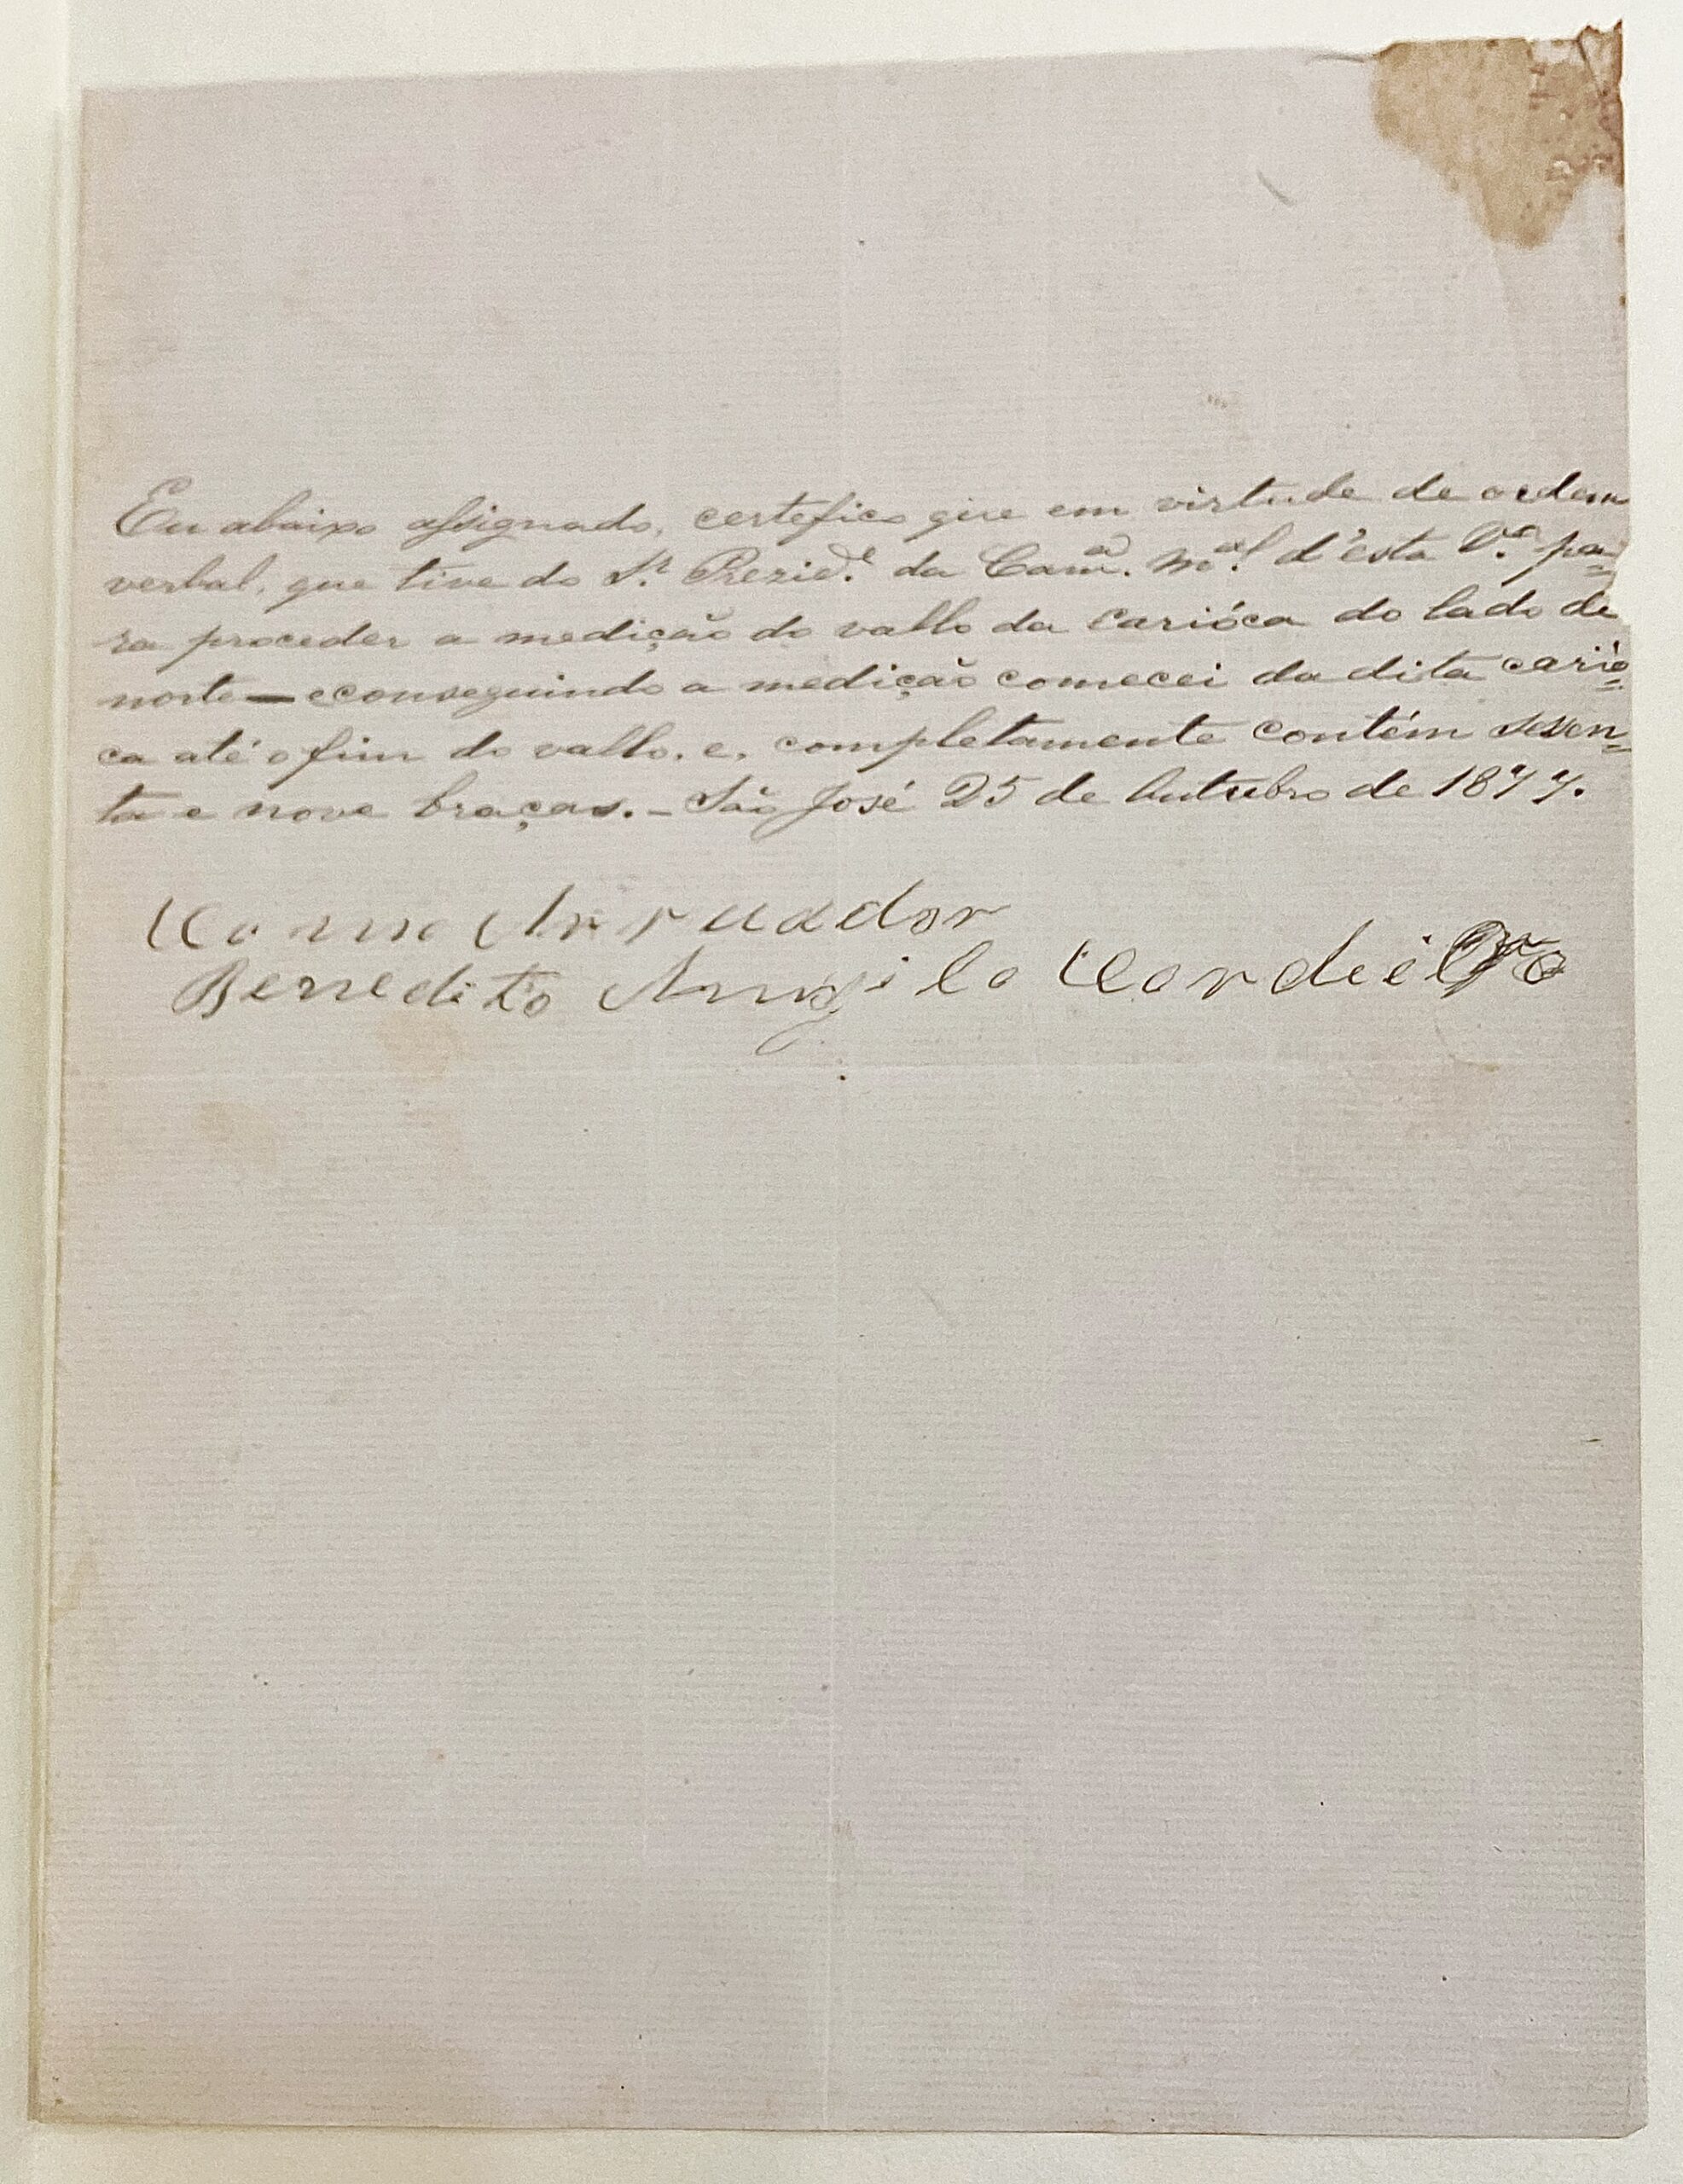 Eu abaixo assignado, certefico que em virtude de ordem
verbal, que tive do Sr. Prezide. da Camª. Mal. d'esta Vª. pa=
ra proceder a medição do vallo da Carióca do lado de
norte — econseguindo a medição comecei da dita carió=
ca até o fim do vallo. e, completamente contém sesen=
ta e nove braças. — São José 25 de Outubro de 1877.
Como Arruador
Benedito Angilo Cordeiro